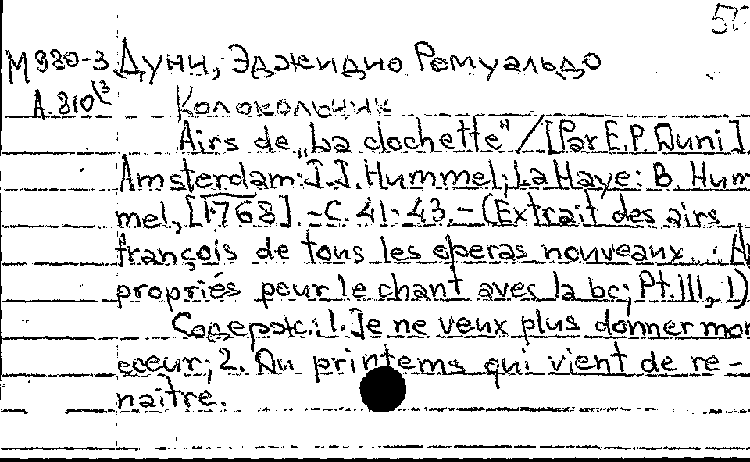 50
М980-3 Дуни, Эджидио Ромуальдо
А.810/3 Колокольчик
Airs de „La clochette" / [Par E.P. Duni].
Amsterdam: J.J. Hummel; La Haye: B. Hum
mel, [1768]. - С. 41-43. - (Extrait des airs
françois de tous les operas nouveaux... Ap
propriés pour le chant avec la bc; Pt. III, 1)
Содерж.: 1. Je ne veux plus donner mon
coeur; 2. Du printems qui vient de re-
naître.